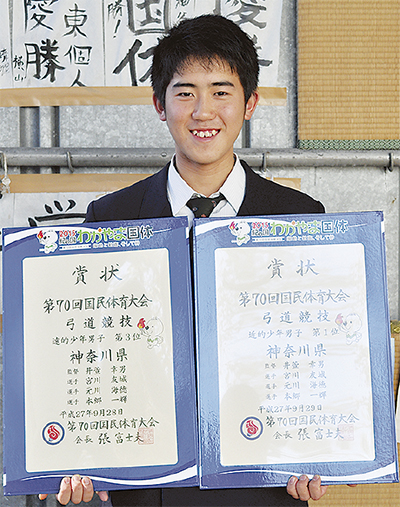 慶
優勝
東個人
優勝
横山
国体
2015
紀の国
わかやま国体
賞状
第70回国民体育大会
弓道競技
遠的少年男子 第3位
神奈川県
監督 井箟 幸男
選手 宮川 友城
選手 元川 海徳
選手 本郷 一輝
平成27年9月28日
第70回国民体育大会
会長 張富士夫
2015
紀の国
わかやま国体
賞状
第70回国民体育大会
弓道競技
遠的少年男子 第1位
神奈川県
監督 井箟 幸男
選手 宮川 友城
選手 元川 海徳
選手 本郷 一輝
平成27年9月29日
第70回国民体育大会
会長 張富士夫